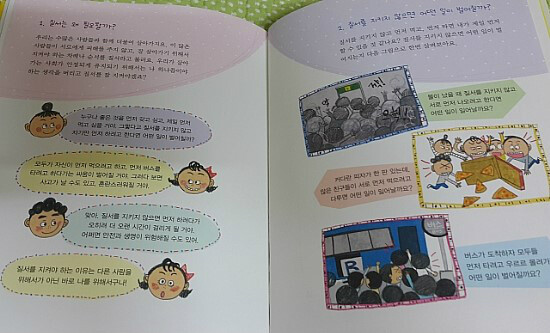 1. 질서는 왜 필요할까?
우리는 수많은 사람들과 함께 더불어 살아가지요. 이 많은
사람들이 서로에게 피해를 주지 않고, 잘 살아가기 위해서
지켜야 하는 차례나 순서를 질서라고 불러요. 우리가 살아
가는 사회가 안정되게 유지되기 위해서는 나 하나쯤이야
하는 생각을 버리고 질서를 잘 지켜야겠죠?
누구나 좋은 것을 먼저 갖고 싶고, 제일 먼저
먹고 싶을 거야. 그렇다고 질서를 지키지 않고
자기만 먼저 하려고 한다면 어떤 일이 벌어질까?
모두가 자신이 먼저 먹으려고 하고, 먼저 버스를
타려고 하다가는 싸움이 벌어질 거야. 그러다 보면
사고가 날 수도 있고, 혼란스러워질 거야.
맞아. 질서를 지키지 않으면 먼저 하려다가
오히려 더 오랜 시간이 걸리게 될 거야.
어쩌면 안전과 생명이 위험해질 수도 있어.
질서를 지켜야 하는 이유는 다른 사람을
위해서가 아닌 바로 나를 위해서구나!
2. 질서를 지키지 않으면 어떤 일이 벌어질까?
질서를 지키지 않고 먼저 먹고, 먼저 하면 내가 제일 먼저
할 수 있을 것 같나요? 질서를 지키지 않으면 어떤 일이 벌
어지는지 다음 그림으로 한번 살펴보아요.
불이 났을 때 질서를 지키지 않고
서로 먼저 나오려고 한다면
어떤 일이 일어날까요?
커다란 피자가 한 판 있는데,
많은 친구들이 서로 먼저 먹으려고
다투면 어떤 일이 일어날까요?
버스가 도착하자 모두들
먼저 타려고 우르르 몰려가면
어떤 일이 벌어질까요?